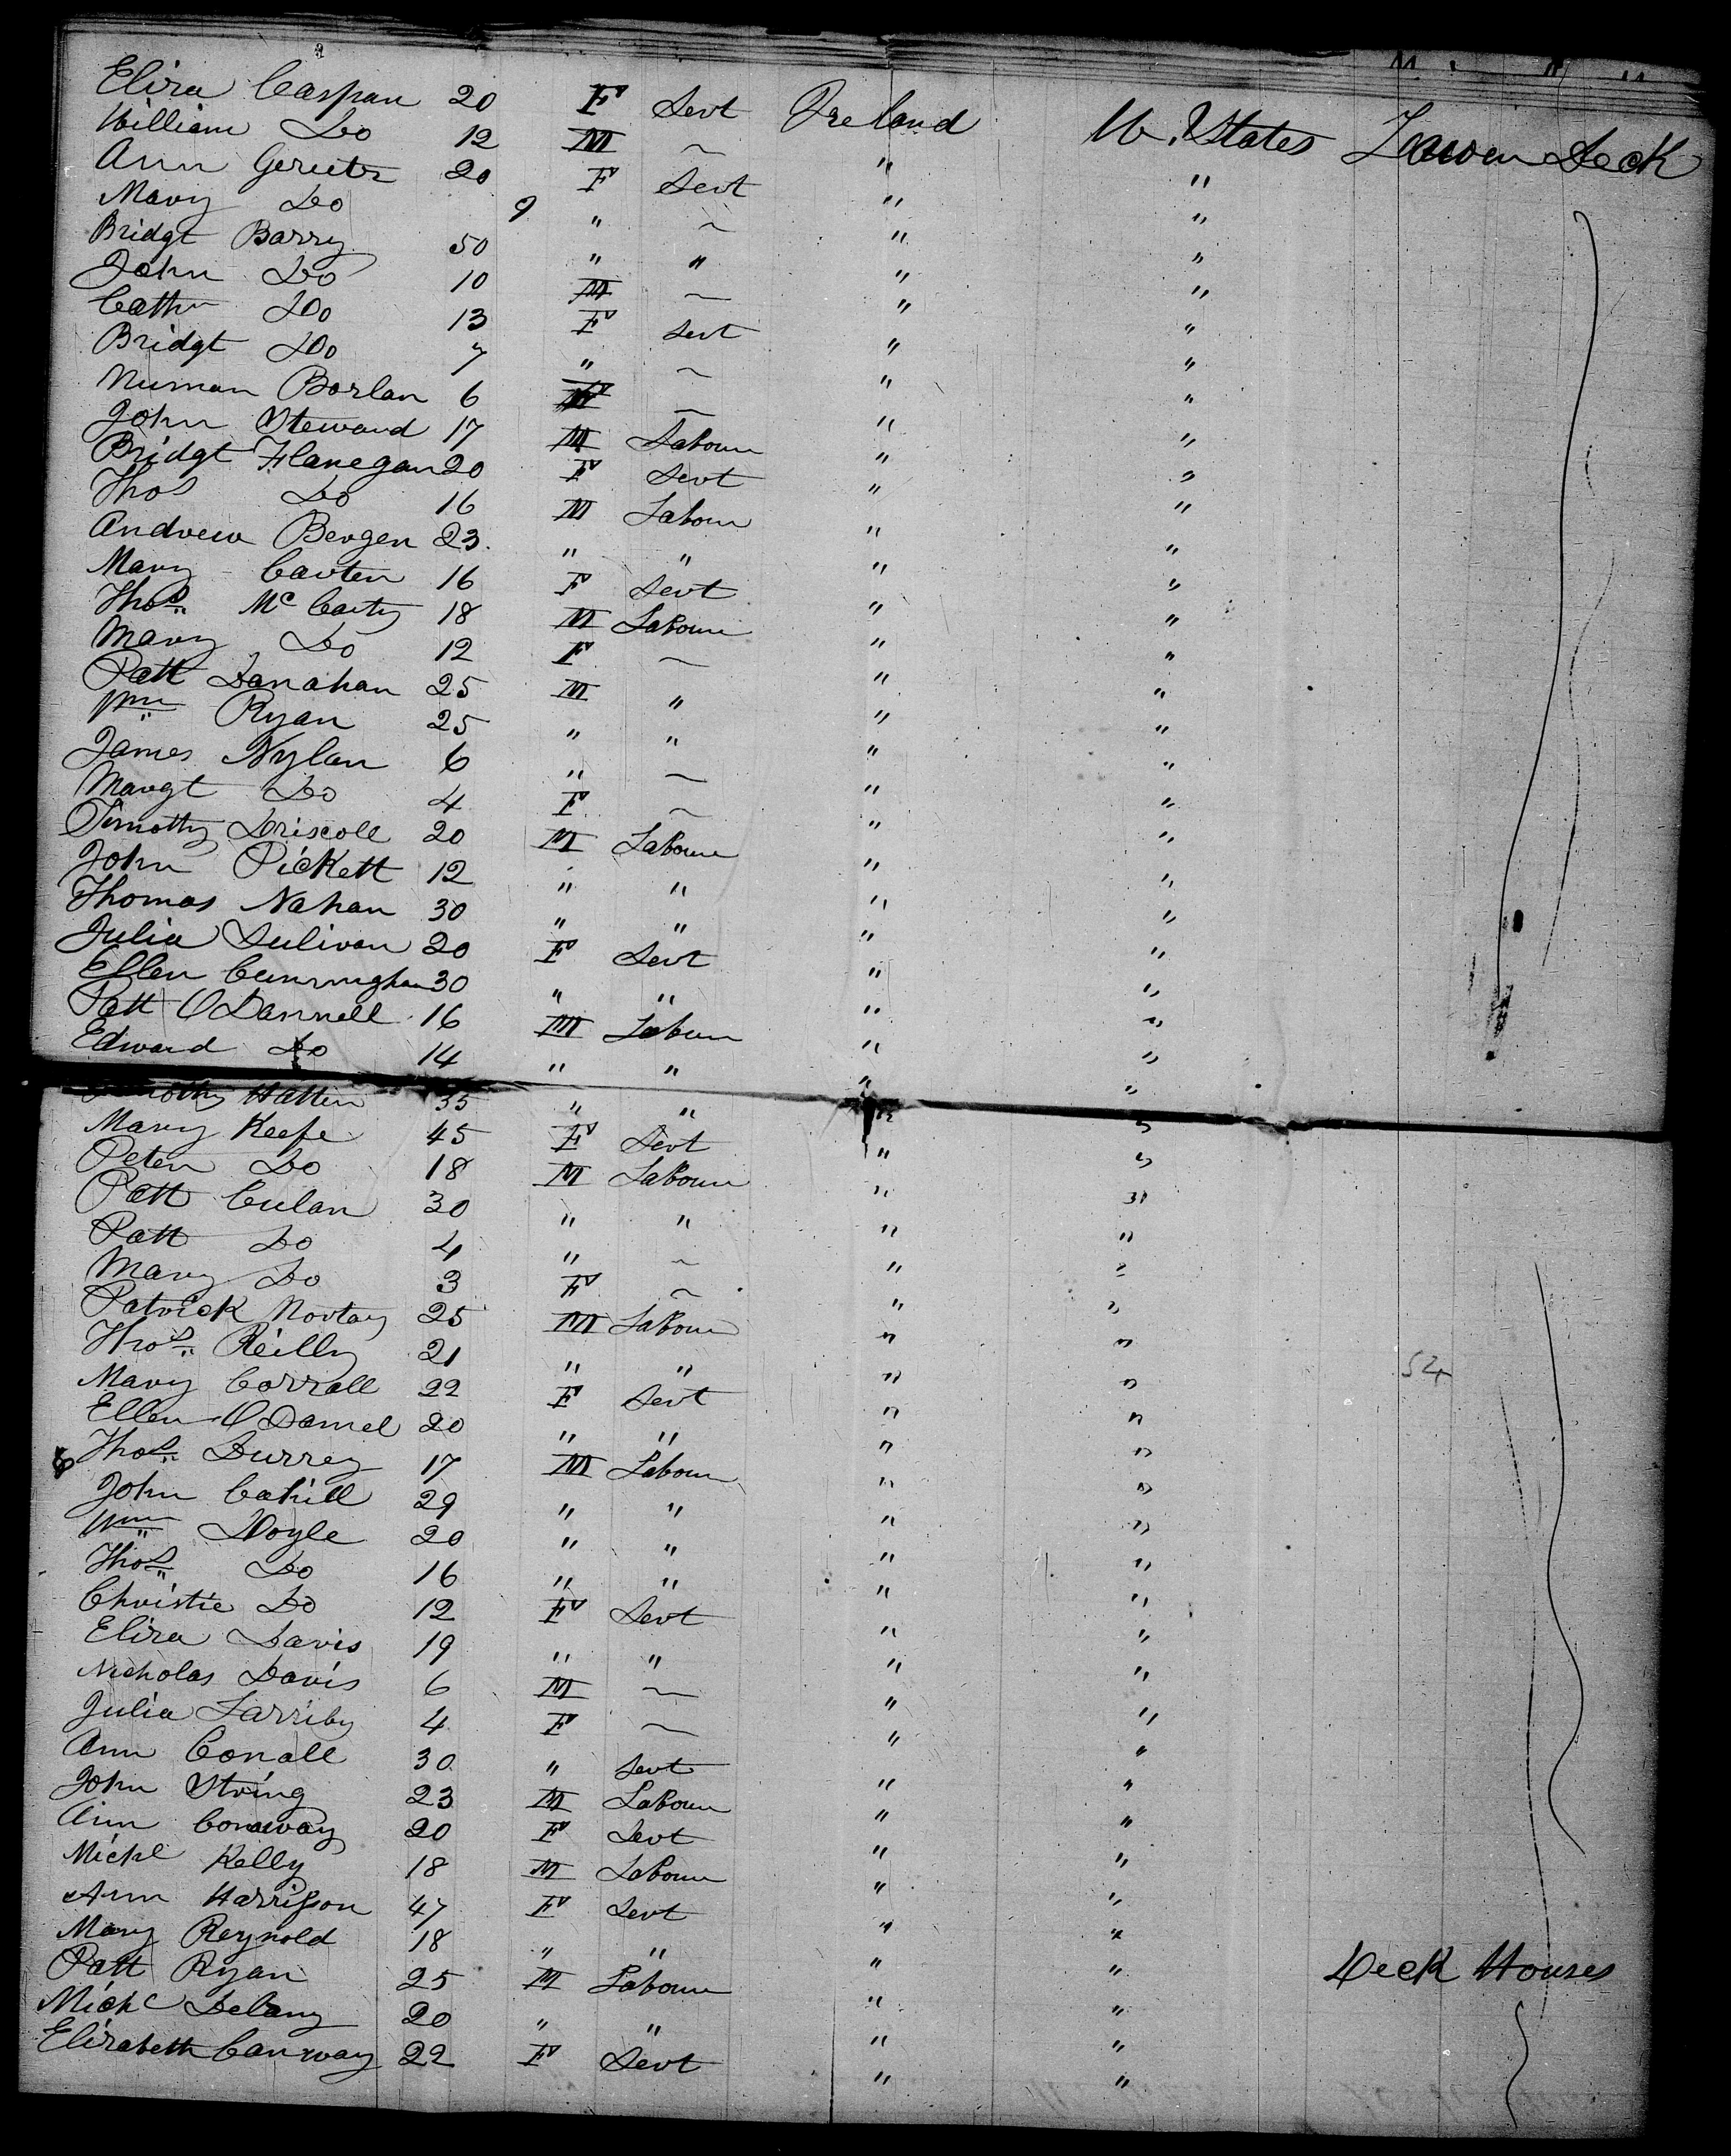 Eliza Caspan 20 F Servt Ireland U. States Lower Deck
William Do 12 M ~ " "
Ann Gerietz 20 F Servt " "
Mary Do 9 " ~ " "
Bridgt Barry 50 " " " "
John Do 10 M ~ " "
Cathn Do 13 F Servt " "
Bridgt Do 7 " ~ " "
Numan Borlan 6 M ~ " "
John Steward 17 M Labour " "
Bridgt Flanegan 20 F Servt " "
Thos Do 16 M Labour " "
Andrew Bergen 23 " " " "
Mary Carten 16 F Servt " "
Thos. Mc Carty 18 M Labour " "
Mary Do 12 F ~ " "
Patt Danahan 25 M " " "
Wm Ryan 25 " " " "
James Nylan 6 " ~ " "
Margt Do 4 F ~ " "
Timothy Driscoll 20 M Labour " "
John Pickett 12 " " " "
Thomas Nahan 30 " " " "
Julia Sulivan 20 F Servt " "
Ellen Cunningham 30 " " " "
Patt O Dannell 16 M Labour " "
Edward Do 14 " " " "
Hatten 35 " " " "
Mary Keefe 45 F Servt " "
Peter Do 18 M Labour " "
Patt Culan 30 " " " "
Patt Do 4 " ~ " "
Mary Do 3 F ~ " "
Patrick Nortay 25 M Labour " "
Thos. Reilly 21 " " " "
Mary Corrall 22 F Servt " " 54
Ellen O Damel 20 " " " "
Thos. Durrey 17 M Labour " "
John Cahill 29 " " " "
Wm Doyle 20 " " " "
Thos. Do 16 " " " "
Christie Do 12 F Servt " "
Eliza Davis 19 " " " "
Nicholas Davis 6 M ~ " "
Julia Larriby 4 F ~ " "
Ann Conall 30 " Servt " "
John String 23 M Labour " "
Ann Conaway 20 F Servt " "
Michl Kelly 18 M Labour " "
Ann Harrisson 47 F Servt " "
Mary Reynold 18 " " " "
Patt Ryan 25 M Labour " " Deck Houses
Michl Delany 20 " " " "
Elizabeth Canway 22 F Servt " "